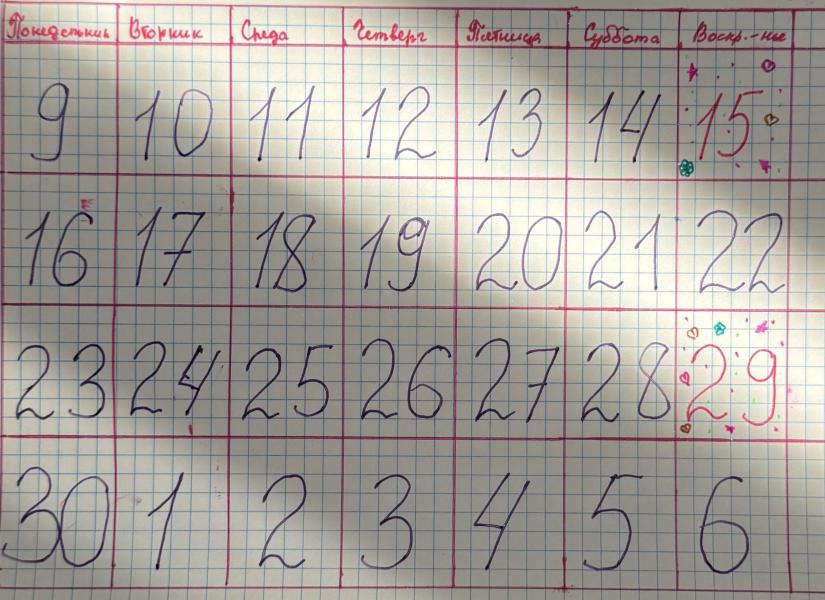 Понедельник Вторник Среда Четверг Пятница Суббота Воскр.-нье
9 10 11 12 13 14 15
16 17 18 19 20 21 22
23 24 25 26 27 28 29
30 1 2 3 4 5 6